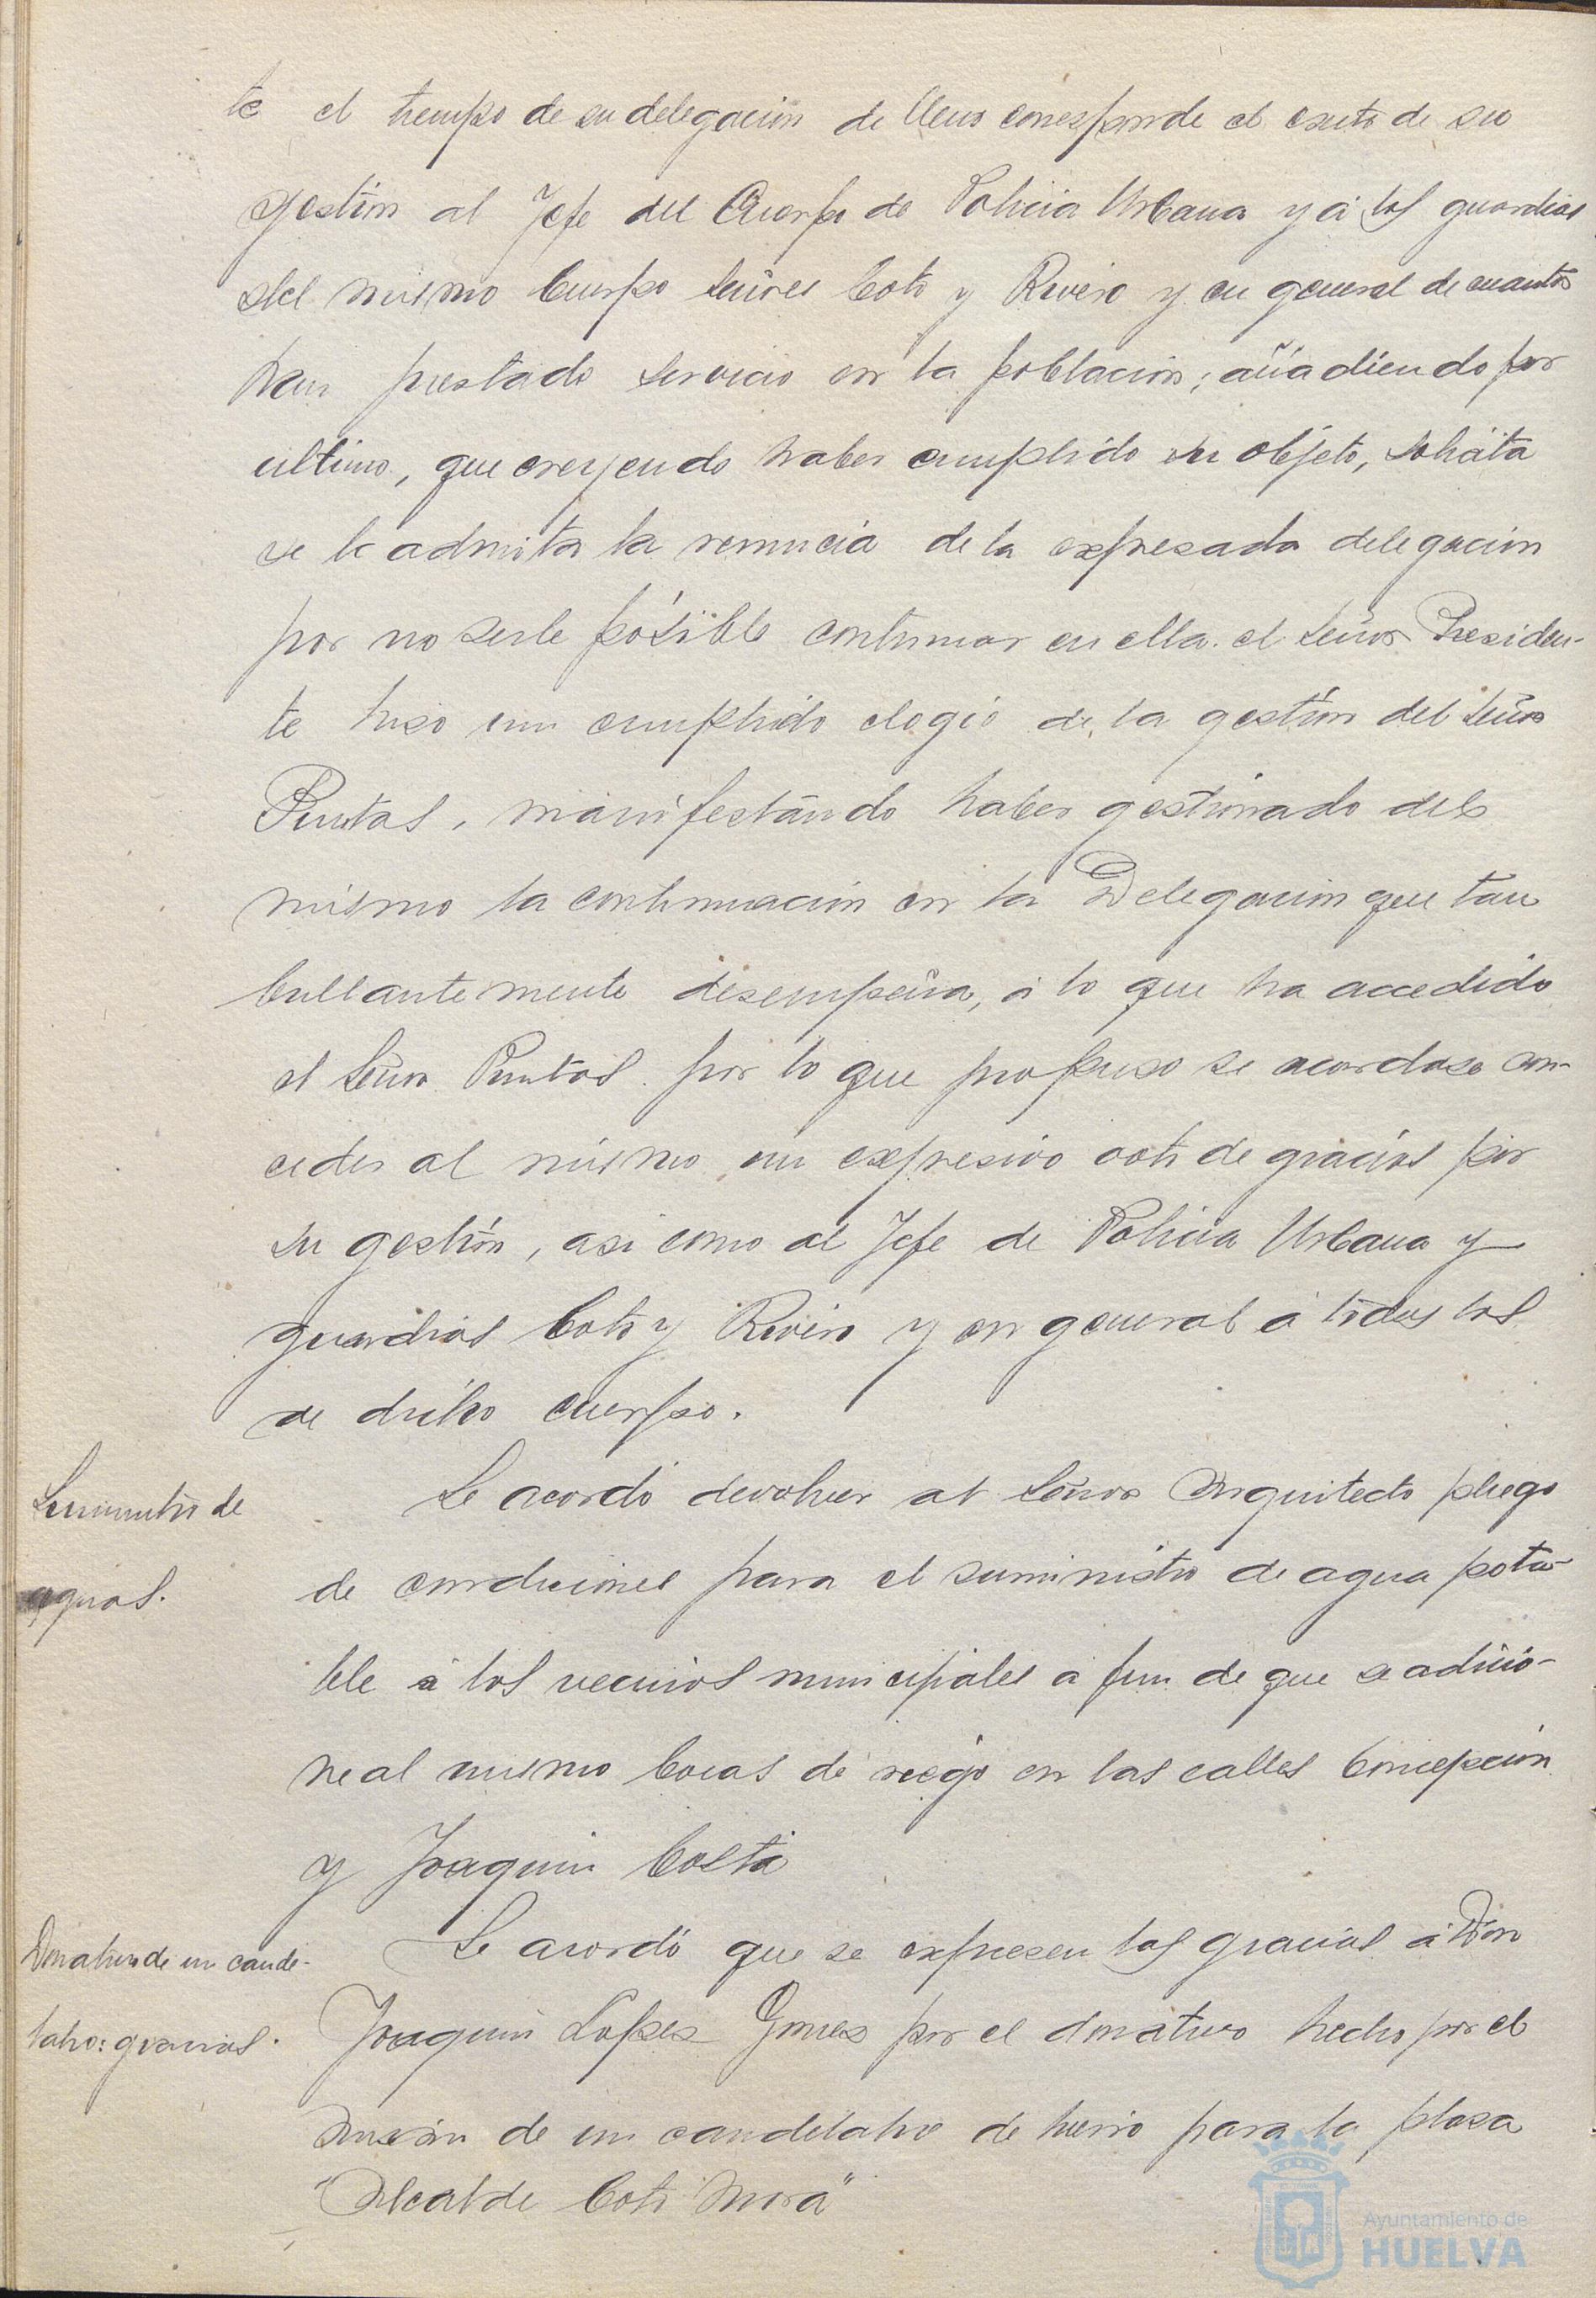 te el tiempo de su delegación de lleno corresponde el exito de su
gestión al Jefe del Cuerpo de Policia Urbana y á los guardias
del mismo Cuerpo señores Coto y Rivero y en general de cuantos
han prestado servicio en la población; añadiendo por
ultimo, que creyendo haber cumplido su objeto, solicita
se le admita la renuncia de la expresada delegación
por no serle posible continuar en ella. el señor Presiden-
te hiso un cumplido elogio de la gestión del señor
Puntas, manifestando haber gestionado del
mismo la continuación en la Delegación que tan
brillantemente desempeña, á lo que ha accedido
el señor Puntas. por lo que propuso se acordase con-
ceder al mismo un expresivo voto de gracias por
su gestión, asi como al Jefe de Policia Urbana y
guardias Coto y Rivero y en general á todos los
de dicho cuerpo.
Suministro de
aguas.
Se acordó devolver al señor Arquitecto pliego
de condiciones para el suministro de agua pota-
ble á los vecinos municipales a fin de que se adicio-
ne al mismo bocas de riego en las calles Concepción
y Joaquin Costa
Donativo de un cande-
labro: gracias.
Se acordó que se expresen las gracias á Don
Joaquin Lopez Gomez por el donativo hecho por el
de un candelabro de hierro para la plasa
"Alcalde Coto Mora"
Ayuntamiento de
HUELVA